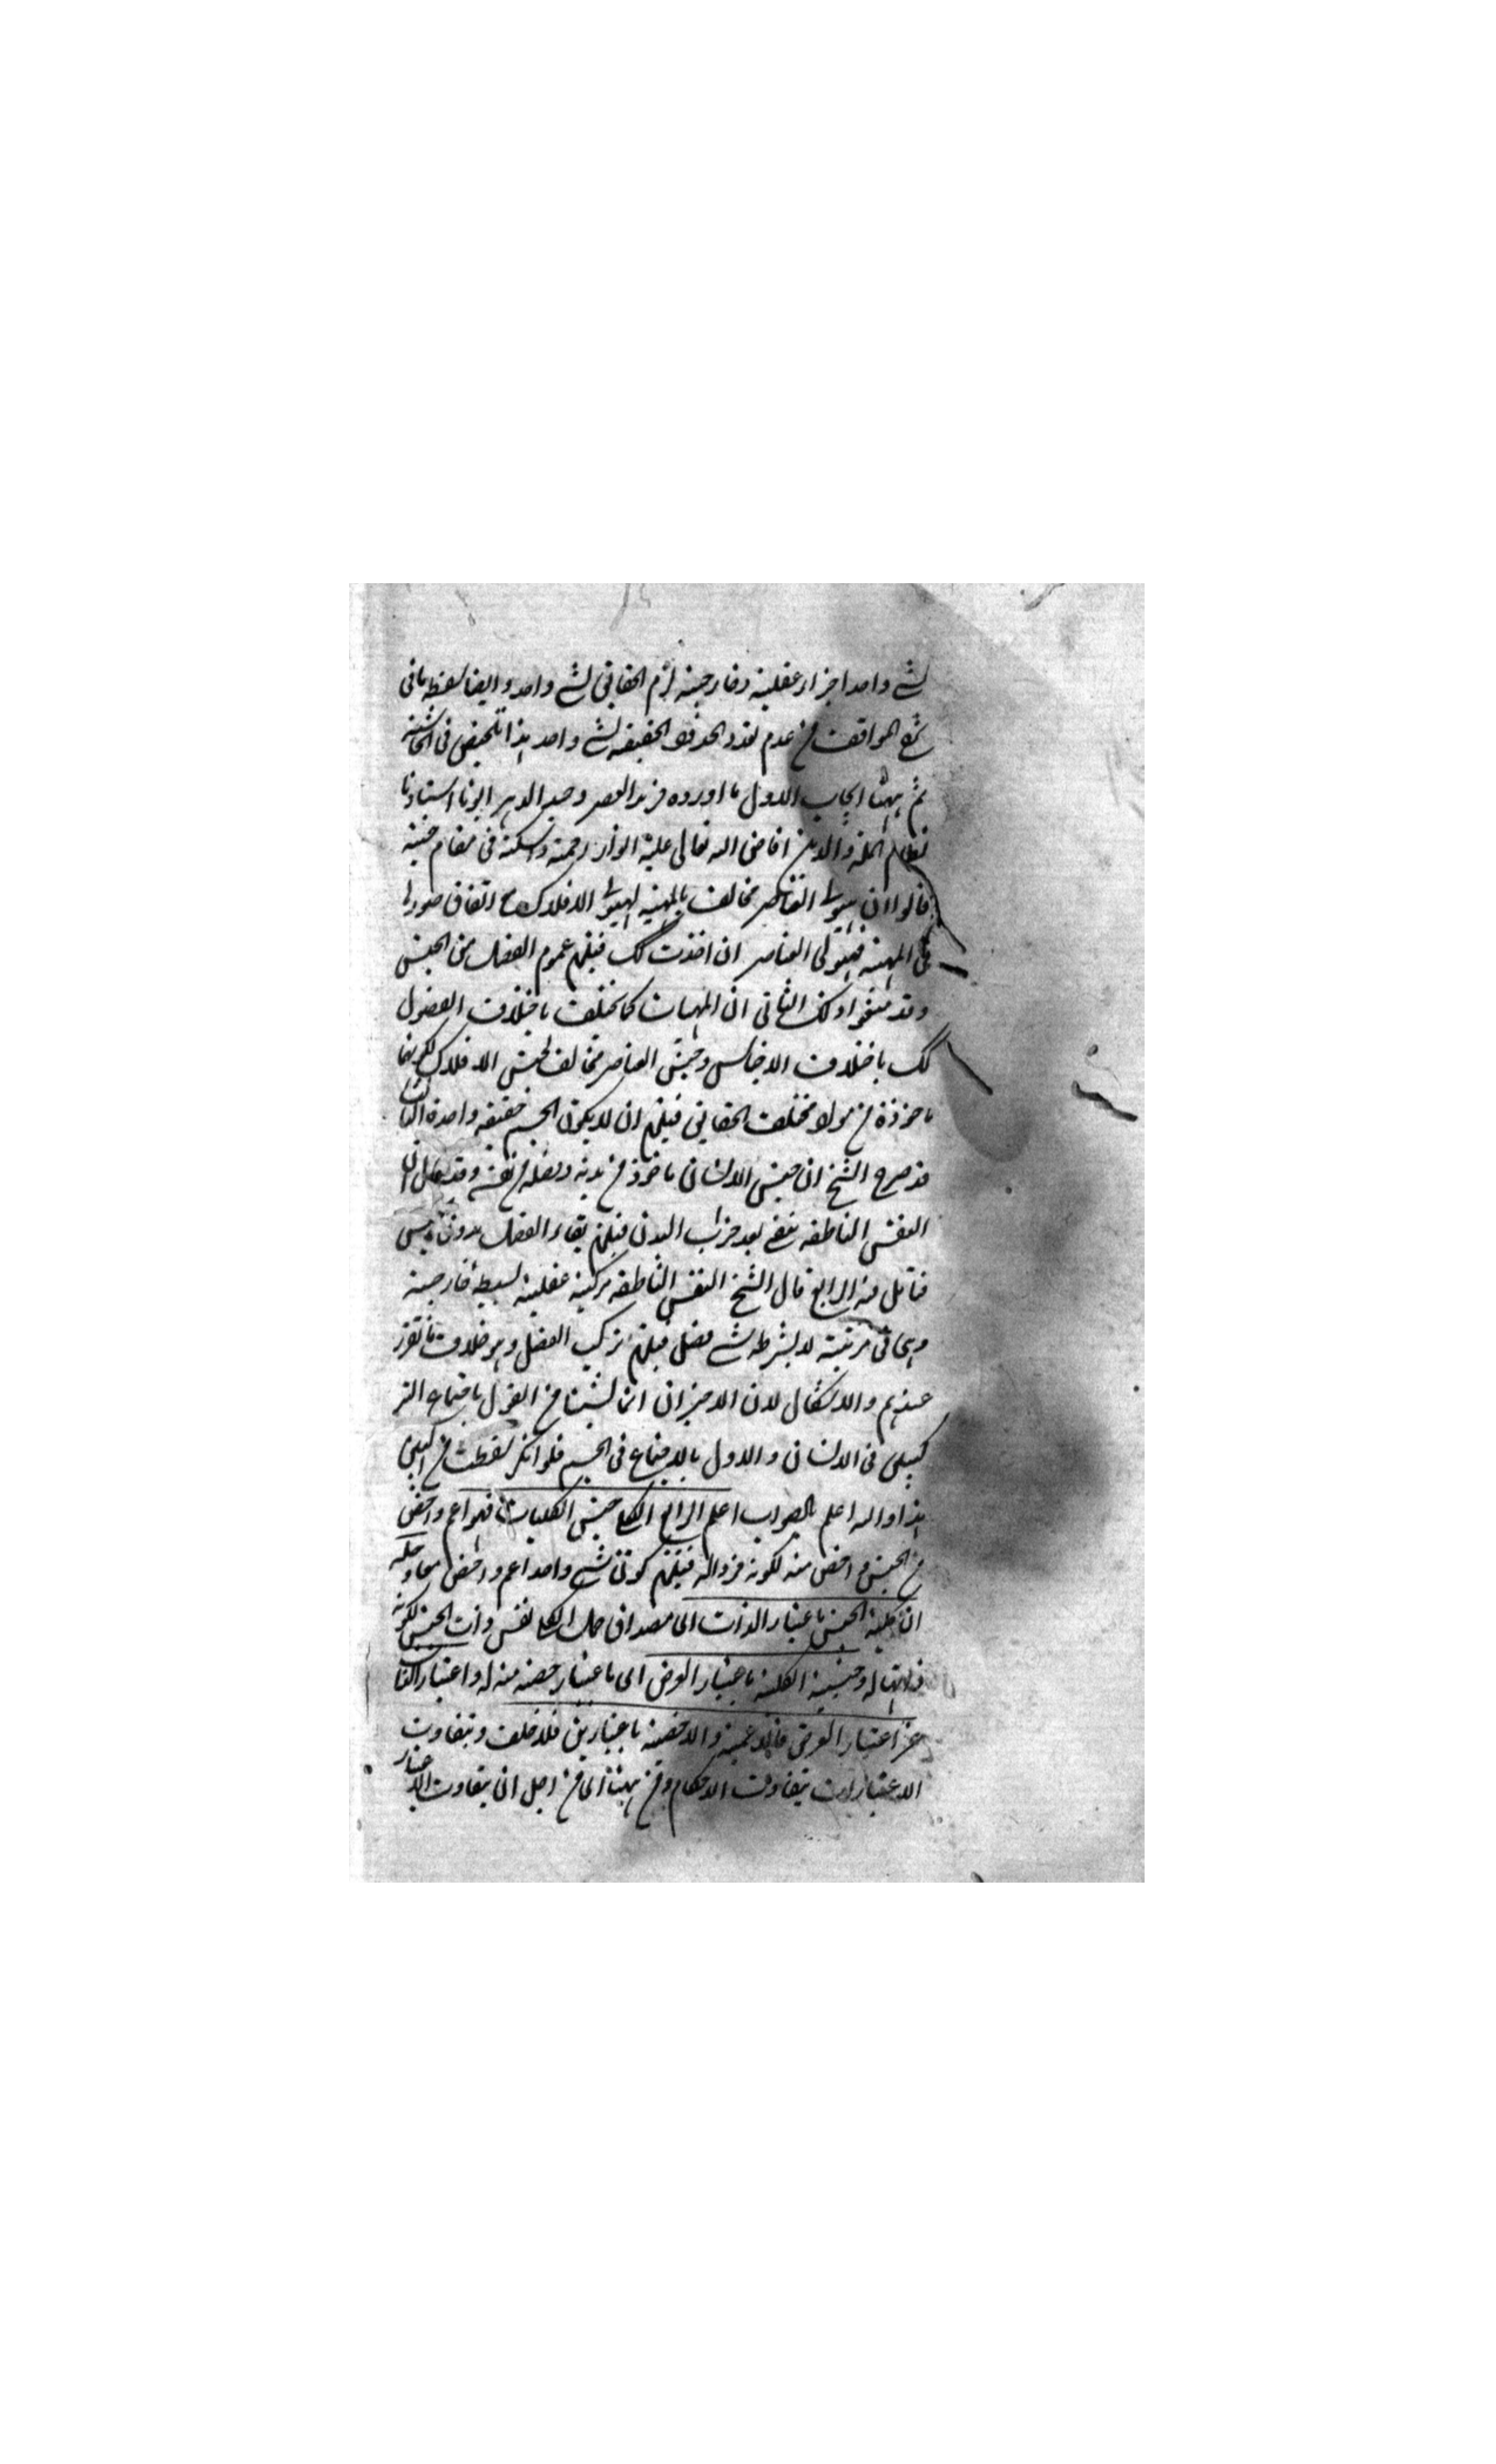 لشے واحد اجزاء عقلية وخارجية لزم الحقائق لشے واحد وايضا لفظه باقى
شرح المواقف من عدم تعدد الحدود الحقيقة لشے واحد هذا تلخيص فى الحاشية
ثم ههنا ابحاث الاول ما اورده فريد العصر وحيد الدهر ابونا استاذنا
نظام الملة والدين افاض الله تعالى عليه انوار رحمته واسكنه فى مقام جنته
قالوا ان هيولى العناصر مخالف بالمهية لهيولى الافلاك مع اتفاق صورة
فى المهية فهيولى العناصر ان اخذت كك فيلزم عموم الفصل من الجنس
وقد منعوا ذلك الثانى ان المهيات كما تختلف باختلاف الفصول
كك باختلاف الاجناس وجنس العناصر مخالف لجنس الافلاك لكونهما
ماخوذة من مواد مختلف الحقائق فيلزم ان لا يكون الجسم حقيقة واحدة الثالث
قد صرح الشيخ ان جنس الانسان ماخوذ من بدنه وفصله من نفسه وقد قال ان
النفس الناطقة تبقى بعد خراب البدن فيلزم بقاء الفصل بدون الجنس
فتامل فيه الرابع قال الشيخ النفس الناطقة مركبة عقلية بسيطة خارجية
وهى فى مرتبة لا بشرط شے فصل فيلزم تركيب الفصل وهو خلاف ما تقرر
عندهم والاشكال لان الاخيران انما نشئا من القول باجتماع التر
كيبين فى الانسان والاول بالاجتماع فى الجسم فلو انكر لسقطت من البين
هذا والله اعلم بالصواب اعلم الرابع الكلى جنس الكليات فهو اعم واخص
من الجنس واخص منه لكونه فردا له فيلزم كون شے واحد اعم واخص معا وحله
ان كلية الجنس باعتبار الذات اى مصداق حمل الكلى نفس ذات الجنس لكونه
ذاتيا له وجنسية الكلية باعتبار العرض اى باعتبار حصة منه له واعتبار الذات
غير اعتبار العرض فالاعمية والاخصية باعتبارين فلا خلف وبتفاوت
الاعتبارات يتفاوت الاحكام ومن ههنا اى من اجل ان بتفاوت الاعتبار